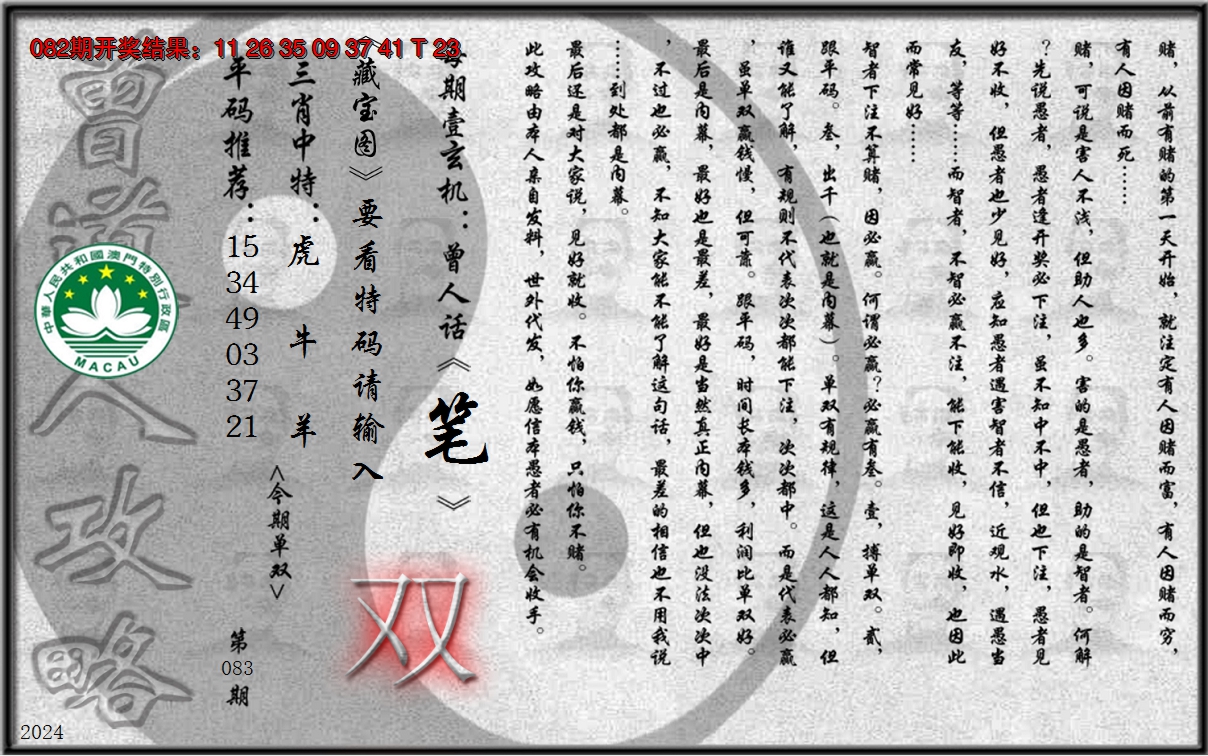 082期开奖结果：11 26 35 09 37 41 T 23
赌，从前有赌的第一天开始，就注定有人因赌而富，有人因赌而穷，
有人因赌而死……
赌，可说是害人不浅，但助人也多。害的是愚者，助的是智者。何解
？先说愚者，愚者逢开奖必下注，虽不知中不中，但也下注，愚者见
好不收，但愚者也少见好，应知愚者遇害智者不信，近观水，遇愚当
友，等等……而智者，不智必赢不注，能下能收，见好即收，也因此
而常见好……
智者下注不算赌，因必赢。何谓必赢？必赢有叁。壹，搏单双。贰，
跟平码。叁，出千（也就是内幕）。单双有规律，这是人人都知，但
谁又能了解，有规则不代表次次都能下注，次次都中。而是代表必赢
，虽单双赢钱慢，但可靠。跟平码，时间长本钱多，利润比单双好。
最后是内幕，最好也是最差，最好是当然真正内幕，但也没法次次中
，不过也必赢，不知大家能不能了解这句话，最差的相信也不用我说
……到处都是内幕。
最后还是对大家说，见好就收。不怕你赢钱，只怕你不赌。
此攻略由本人亲自发料，世外代发，如愿信本愚者必有机会收手。
每期壹玄机：曾人话《笔》
《藏宝图》要看特码请输入
双
三肖中特：虎 牛 羊
<今期单双>
平码推荐：15 34 49 03 37 21
第083期
曾道人攻略
中華人民共和國澳門特別行政區
MACAU
2024